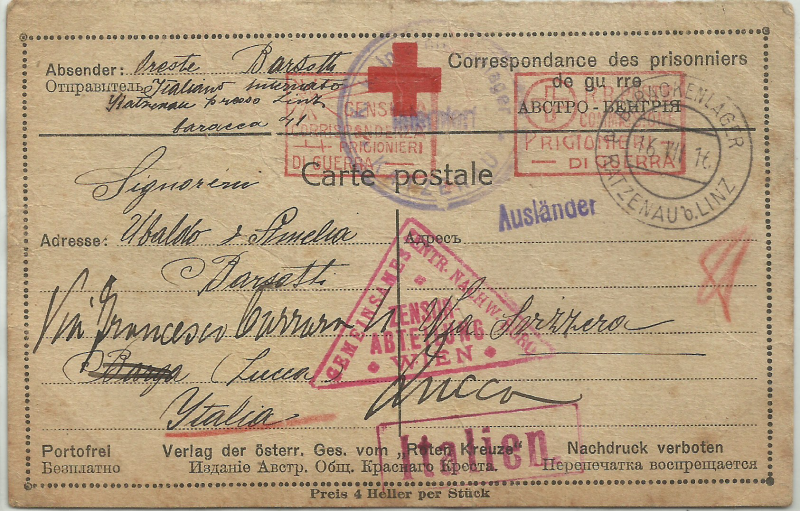 Absender: Oreste Barsotti
Correspondance des prisonniers
Отправитель Italiano internato
de gu rre
Katzenau presso Linz
АВСТРО-ВЕНГРІЯ
baracca 41
CENSURA
CORRISPONDENZA
PRIGIONIERI
DI GUERRA
PRIGIONIERI
DI GUERRA
BARACKENLAGER
KATZENAU b. LINZ
Carte postale
Signorini
Ausländer
Adresse: Ubaldo e Amelia
Адресъ
Barsotti
Via Francesco
Svizzera
GEMEINSAMES ZENTR. NACHW. BUREAU
ZENSUR
ABTEILUNG
WIEN
Barga (Lucca
Lucca
Italia
Italien.
Portofrei
Verlag der österr. Ges. vom „Roten Kreuze"
Nachdruck verboten
Безплатно
Изданіе Австр. Общ. Краснаго Креста.
Перепечатка воспрещается
Preis 4 Heller per Stück